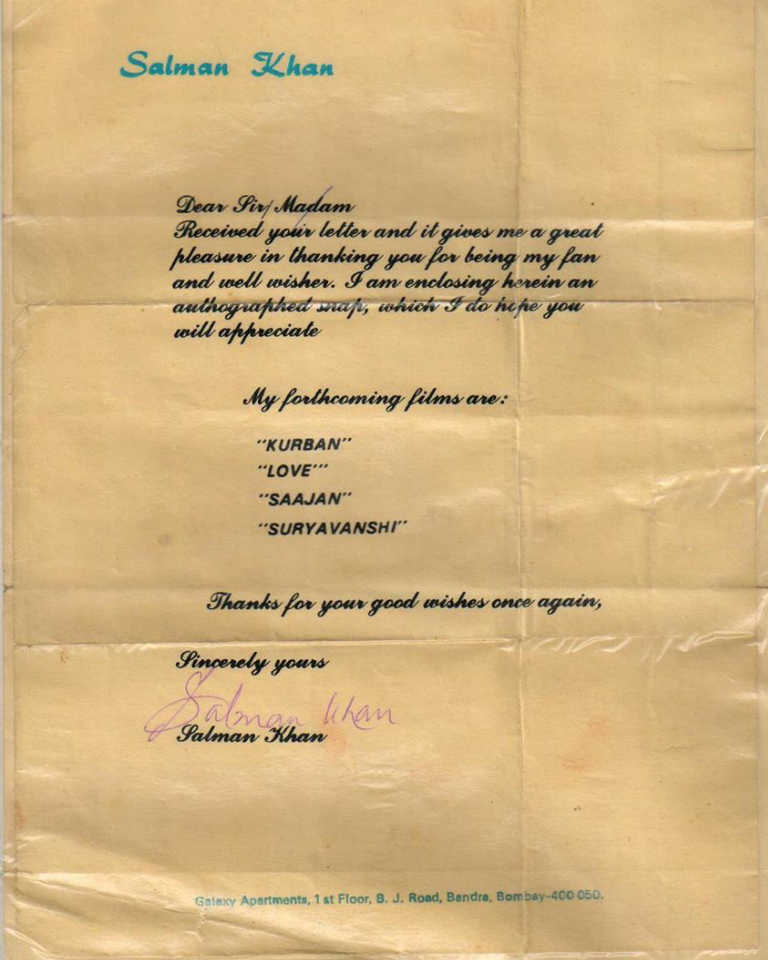 Salman Khan
Dear Sir/Madam
Received your letter and it gives me a great
pleasure in thanking you for being my fan
and well wisher. I am enclosing herein an
authographed snap, which I do hope you
will appreciate
My forthcoming films are:
"KURBAN"
"LOVE'"
"SAAJAN"
"SURYAVANSHI"
Thanks for your good wishes once again,
Sincerely yours
Salman Khan
Salman Khan
Galaxy Apartments, 1st Floor, B. J. Road, Bandra, Bombay-400 050.